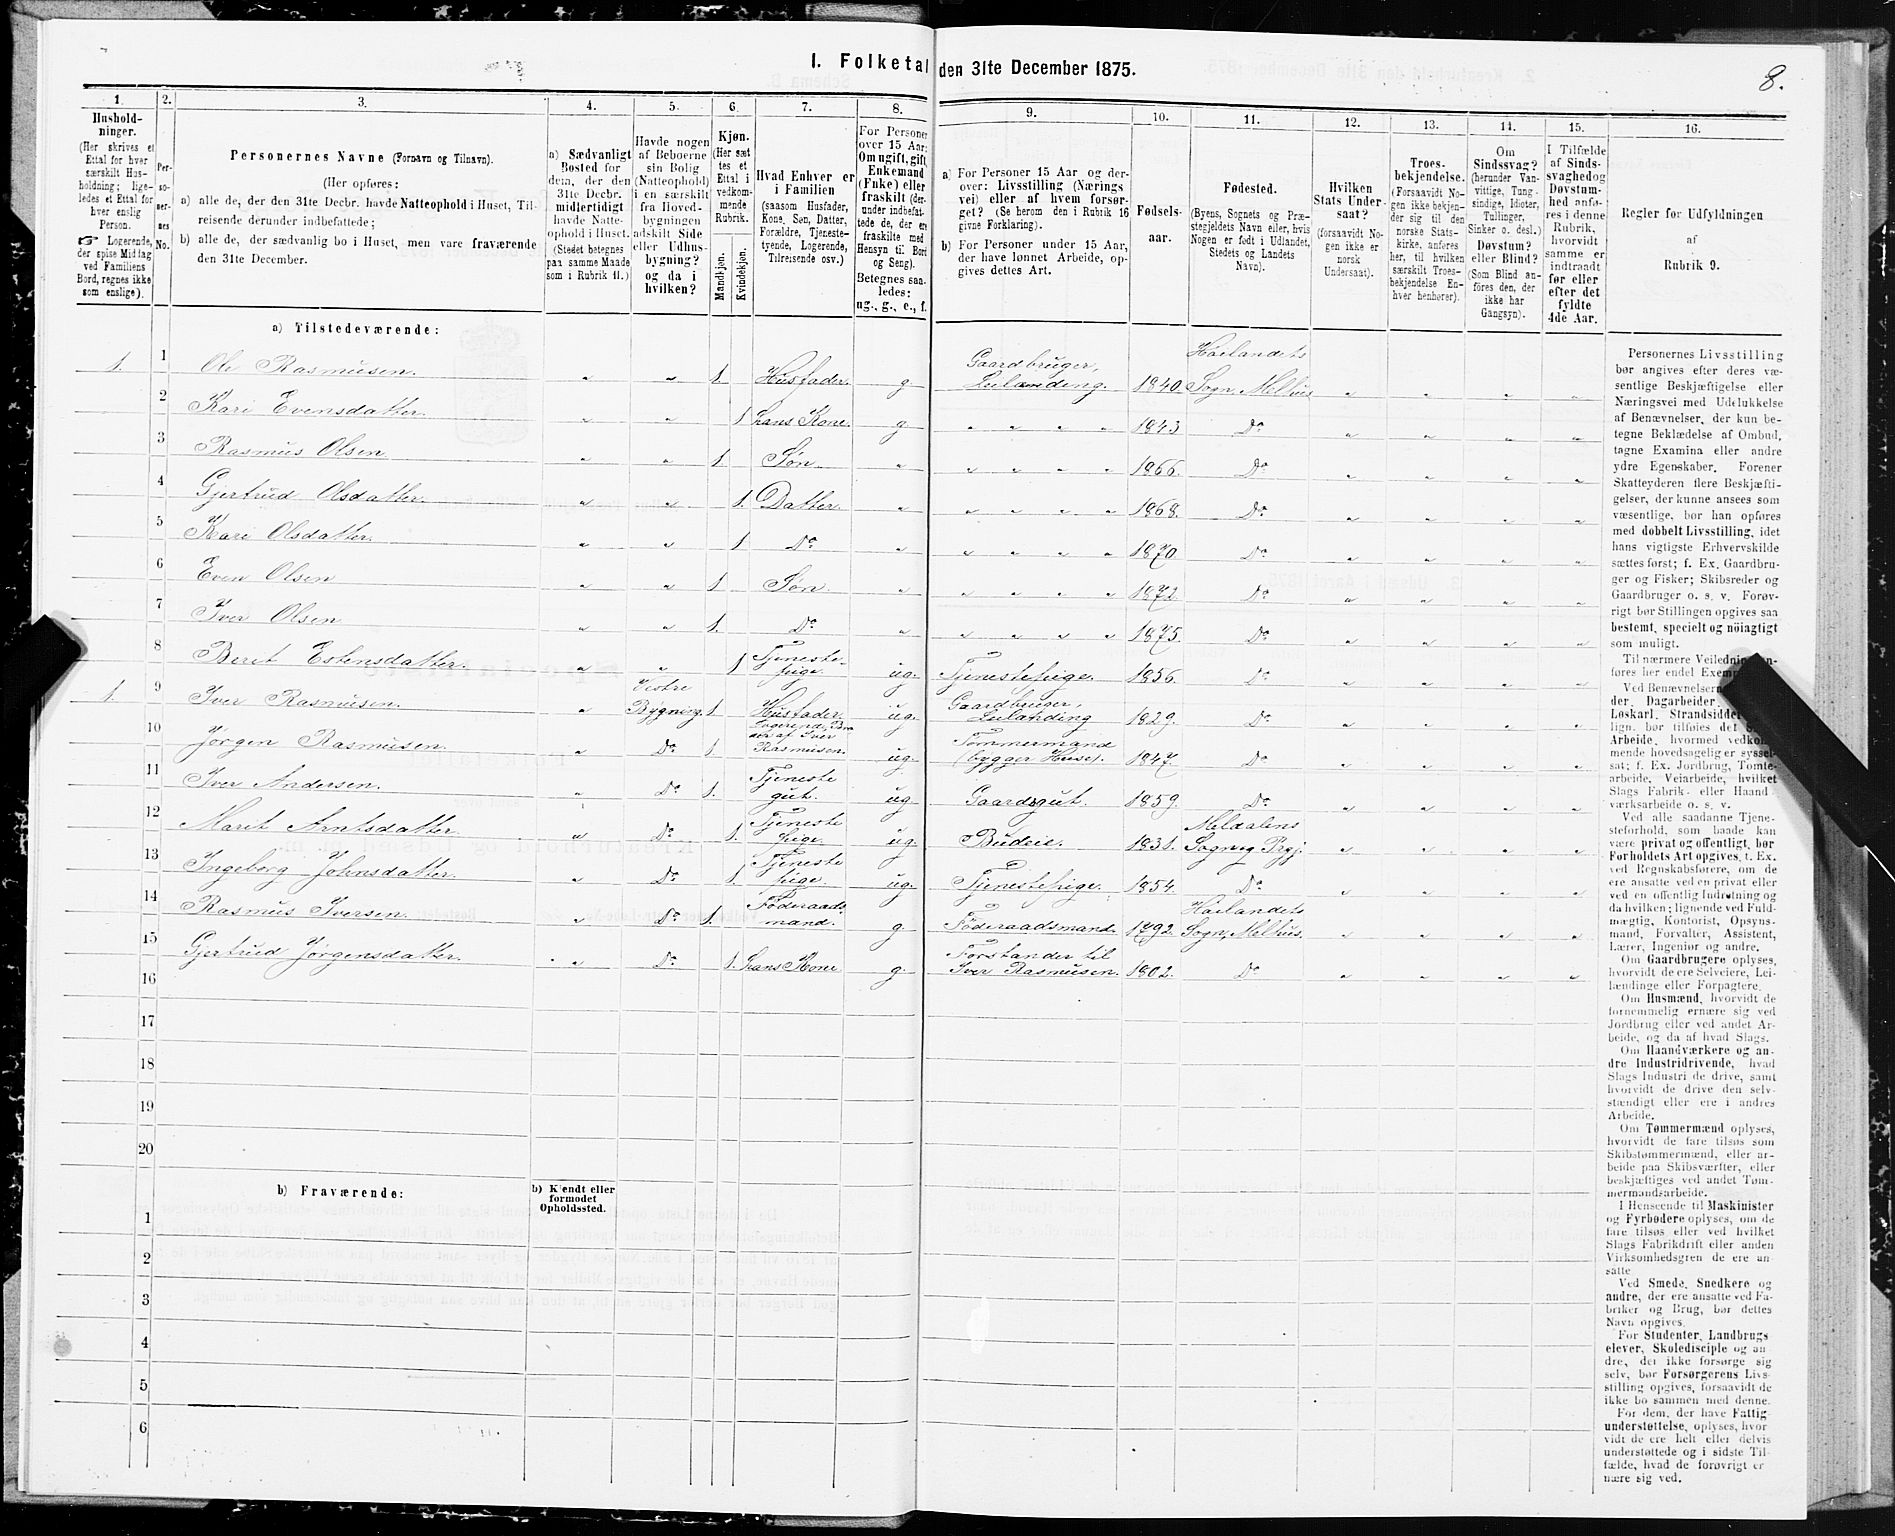 I. Folketal den 31te December 1875.
8.
1.
2.
3.
4.
5.
6.
7.
8.
9.
10.
11.
12.
13.
14.
15.
16.
Hushold-
ninger.
(Her skrives et
Ettal for hver
særskilt Hus-
holdning; lige-
ledes et Ettal for
hver enslig
Person.
☞ Logerende,
der spise Middag
ved Familiens
Bord, regnes ikke
som enslige).
Per-
so-
ner-
nes
No.
Personernes Navne (Fornavn og Tilnavn).
(Her opføres:
a) alle de, der den 31te Decbr. havde Natteophold i Huset, Til-
reisende derunder indbefattede;
b) alle de, der sædvanlig bo i Huset, men vare fraværende
den 31te December.
a) Sædvanligt
Bosted for
dem, der den
31te Decbr.
midlertidigt
havde Natte-
ophold i Huset.
(Stedet betegnes
paa samme Maade
som i Rubrik 11.)
Havde nogen
af Beboerne
sin Bolig
(Natteophold)
i en særskilt
fra Hoved-
bygningen
adskilt Side
eller Udhus-
bygning?
og da i
hvilken?
Kjøn.
(Her sæt
tes et
Ettal i
vedkom-
mende
Rubrik.
Mandkjøn.
Kvindekjøn.
Hvad Enhver er
i Familien
(saasom Husfader,
Kone, Søn, Datter,
Forældre, Tjeneste-
tyende, Logerende,
Tilreisende osv.)
For Personer
over 15 Aar:
Om ugift, gift,
Enkemand
(Enke) eller
fraskilt (der-
under indbefat-
tede de, der ere
fraskilte med
Hensyn til Bord
og Seng).
Betegnes saa-
ledes:
ug., g., e., f.
a) For Personer 15 Aar og der-
over: Livsstilling (Nærings
vei) eller af hvem forsør-
get? (Se herom den i Rubrik 16
givne Forklaring).
b) For Personer under 15 Aar,
der have lønnet Arbeide, op-
gives dettes Art.
Fødsels-
aar.
Fødested.
(Byens, Sognets og Præ-
stegjeldets Navn eller, hvis
Nogen er født i Udlandet,
Stedets og Landets
Navn).
Hvilken
Stats Under-
saat?
(forsaavidt No-
gen ikke er
norsk
Undersaat).
Troes-
bekjendelse.
(Forsaavidt No-
gen ikke bekjen-
der sig til den
norske Stats-
kirke, anføres
her, til hvilken
særskilt Troes-
bekjendelse En-
hver henhører).
Om
Sindssvag?
(herunder Van-
vittige, Tung-
sindige, Idioter,
Tullinger,
Sinker o. desl.)
Døvstum?
eller Blind?
(Som Blind an-
føres den, der
ikke har
Gangsyn).
I Tilfælde
af Sinds-
svaghed og
Døvstum-
hed anfø-
res i denne
Rubrik,
hvorvidt
samme er
indtraadt
før eller
efter det
fyldte
4de Aar.
Regler for Udfyldningen
af
Rubrik 9.
a) Tilstedeværende:
1. 1 Ole Rasmusen. " " 1. Husfader. g Gaardbruger, Leilænding. 1840. Hølandets Sogn, Melhus " " " "
2 Kari Evensdatter. " " 1 hans Kone. g " " " " 1843 Do " " " "
3 Rasmus Olsen " " 1. Søn. " " " " " 1866. Do " " " "
4 Gjertrud Olsdatter. " " 1. Datter. " " " " " 1868. Do " " " "
5 Kari Olsdatter. " " 1 Do " " " " " 1870. Do " " " "
6 Even Olsen " " 1. Søn. " " " " " 1872. Do " " " "
7 Iver Olsen " " 1. Do " " " " " 1875. Do " " " "
8 Berit Estensdatter. " " 1 Tjeneste-pige. ug. Tjenestepige. 1856. Do " " " "
1 9 Iver Rasmusen. " Vestre Bygning. 1. Husfader. ug. Gaardbruger, Leilænding 1829. Do " " " "
10 Jørgen Rasmusen. " Do 1. Logerende, Bro der af Iver Rasmusen. ug. Tømmermand (bygger Huse). 1847. Do " " " "
11 Iver Andersen. " Do 1. Tjeneste gut. ug. Gaardsgut. 1859. Do " " " "
12 Marit Arntsdatter. " Do 1. Tjeneste pige. ug. Budeie. 1831. Meldalens Sogn og Prgj. " " " "
13 Ingeborg Johnsdatter. " Do 1. Tjeneste pige. ug. Tjenestepige. 1854. Do " " " "
14 Rasmus Iversen. " Do 1. Føderaads mand. g. Føderaadsmand. 1792. Hølandets Sogn, Melhus. " " " "
15 Gjertrud Jørgensdatter. " Do 1. hans Kone g. Forstander til Iver Rasmusen. 1802. Do " " " "
16
17
18
19
20
b) Fraværende:
b) Kjendt eller
formodet
Opholdssted.
1
2
3
4
5
6
Personernes Livsstilling
bør angives efter deres væ-
sentlige Beskjæftigelse eller
Næringsvei med Udelukkelse
af Benævnelser, der kun be-
tegne Beklædelse af Ombud,
tagne Examina eller andre
ydre Egenskaber. Forener
Skatteyderen flere Beskjæfti-
gelser, der kunne ansees som
væsentlige, bør han opføres
med dobbelt Livsstilling, idet
hans vigtigste Erhvervskilde
sættes først; f. Ex. Gaardbru-
ger og Fisker; Skibsreder og
Gaardbruger o. s. v. Forøv-
rigt bør Stillingen opgives saa
bestemt, specielt og nöiagtigt
som muligt.
Til nærmere Veiledning
føres her endel
Ved Benævnelsern
der, Dagarbeider,
Løskarl, Strandsidder
lign. bør tilføies det
Arbeide, hvormed vedkom-
mende hovedsagelig er syssel-
sat; f. Ex. Jordbrug, Tomte-
arbeide, Veiarbeide, hvilket
Slags Fabrik- eller Haand-
værksarbeide o. s. v.
Ved alle saadanne Tjene-
steforhold, som baade kan
være privat og offentligt, bør
Forholdets Art opgives, t. Ex.
ved Regnskabsførere, om de
ere ansatte ved en privat eller
ved en offentlig Indretning og
da hvilken; lignende ved Fuld-
mægtig, Kontorist, Opsyns-
mand, Forvalter, Assistent,
Lærer, Ingeniør og andre.
Om Gaardbrugere oplyses,
hvorvidt de ere Selveiere, Lei-
lændinge eller Forpagtere.
Om Husmænd, hvorvidt de
fornemmelig ernære sig ved
Jordbrug eller ved andet Ar-
beide, og da af hvad Slags.
Om Haandværkere og an-
dre Industridrivende, hvad
Slags Industri de drive, samt
hvorvidt de drive den selv-
stændigt eller ere i andres
Arbeide.
Om Tømmermænd oplyses,
hvorvidt de fare tilsøs som
Skibstømmermænd, eller ar-
beide paa Skibsværfter, eller
beskjæftiges ved andet Tøm-
mermandsarbeide.
I Henseende til Maskinister
og Fyrbødere oplyses, om de
fare tilsøs eller ved hvilket
Slags Fabrikdrift eller anden
Virksomhedsgren de ere an-
satte
Ved Smede, Snedkere og
andre, der ere ansatte ved Fa-
briker og Brug, bør dettes
Navn opgives.
For Studenter, Landbrugs
elever, Skoledisciple og an-
dre, der ikke forsørge sig
selv, bør Forsørgerens Livs-
stilling opgives, forsaavidt de
ikke bo sammen med denne.
For dem, der have Fattig-
understøttelse, oplyses, hvor
vidt de ere helt eller delvis
understøttede og i sidste Til-
fælde, hvad de forøvrigt er
nære sig ved.